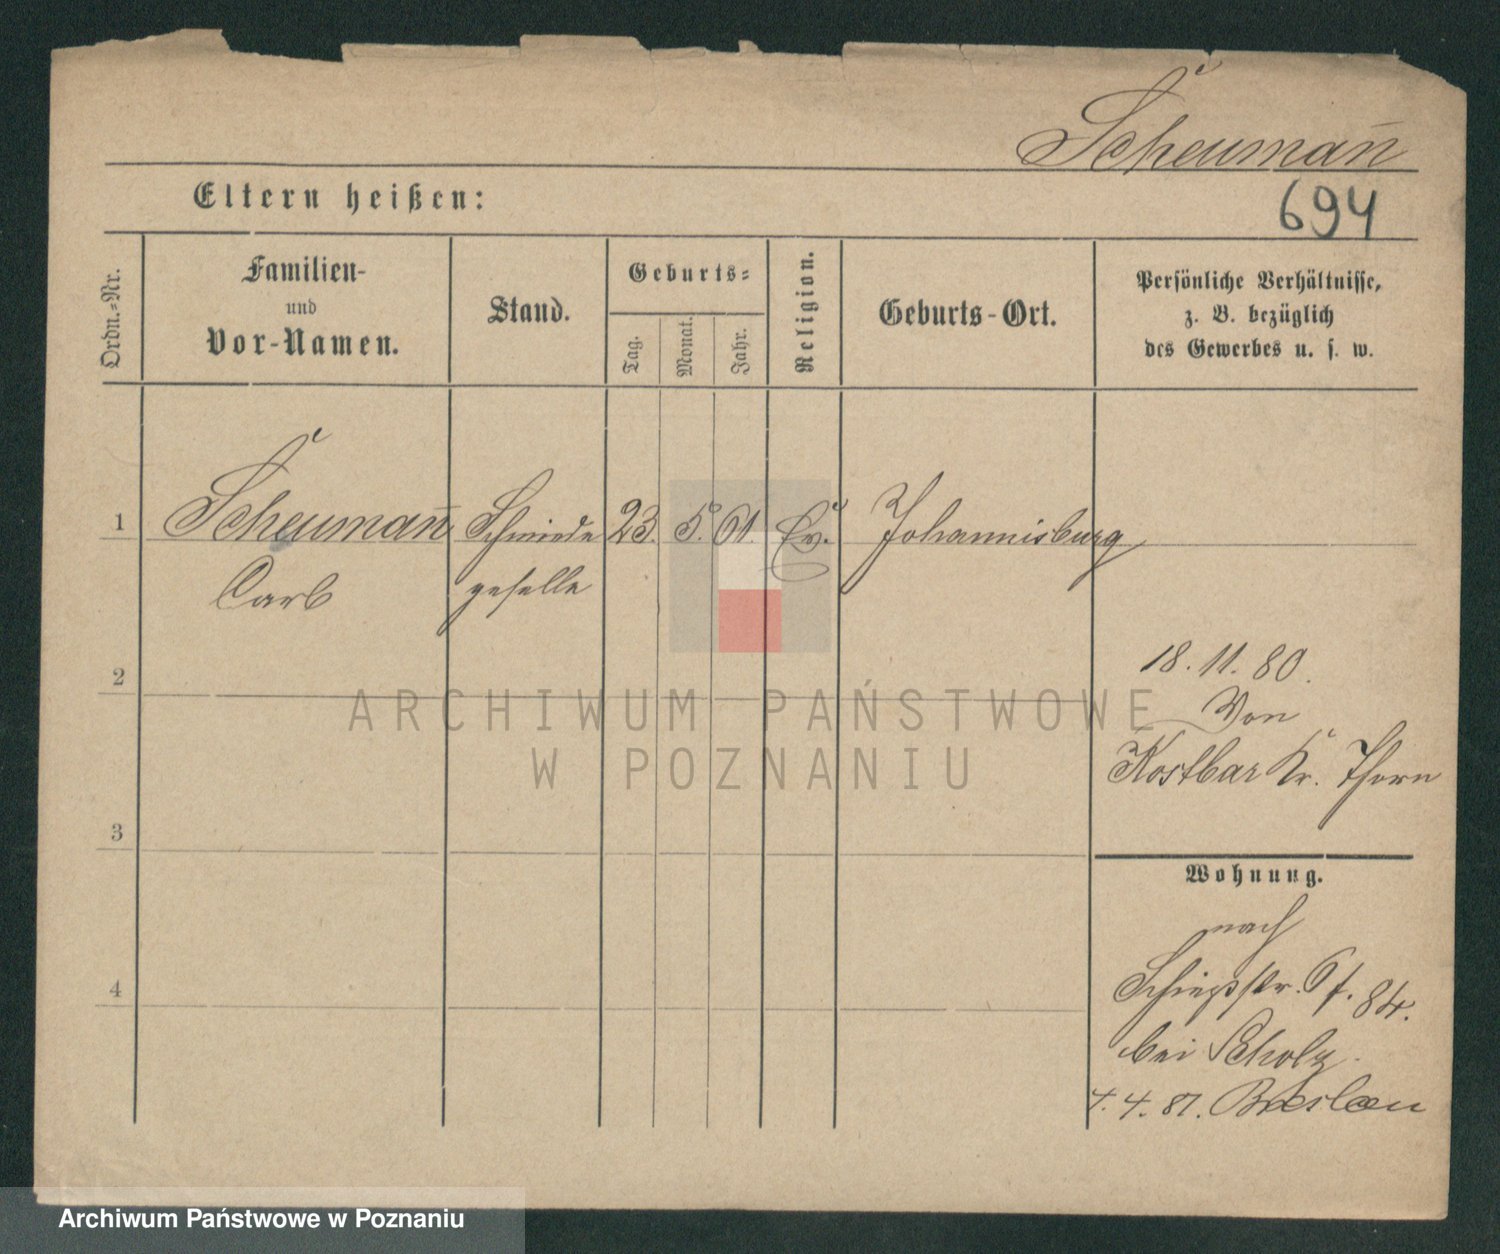 Scheumañ
694
Eltern heißen:
Ordn.-Nr.
Familien-
und
Vor-Namen.
Stand.
Geburts-
Tag.
Monat.
Jahr.
Religion.
Geburts-Ort.
Persönliche Verhältnisse,
z. B. bezüglich
des Gewerbes u. s. w.
1 Scheumañ Schmiede 23. 5. 61. Ev. Johannisburg
Carl geselle
2
3
4
18. 11. 80.
Von
Kostbar Kr. Thorn
Wohnung.
nach
Schießstr. 6 f. 84.
bei Scholz.
4. 81. Breslau
ARCHIWUM PAŃSTWOWE
W POZNANIU
Archiwum Państwowe w Poznaniu